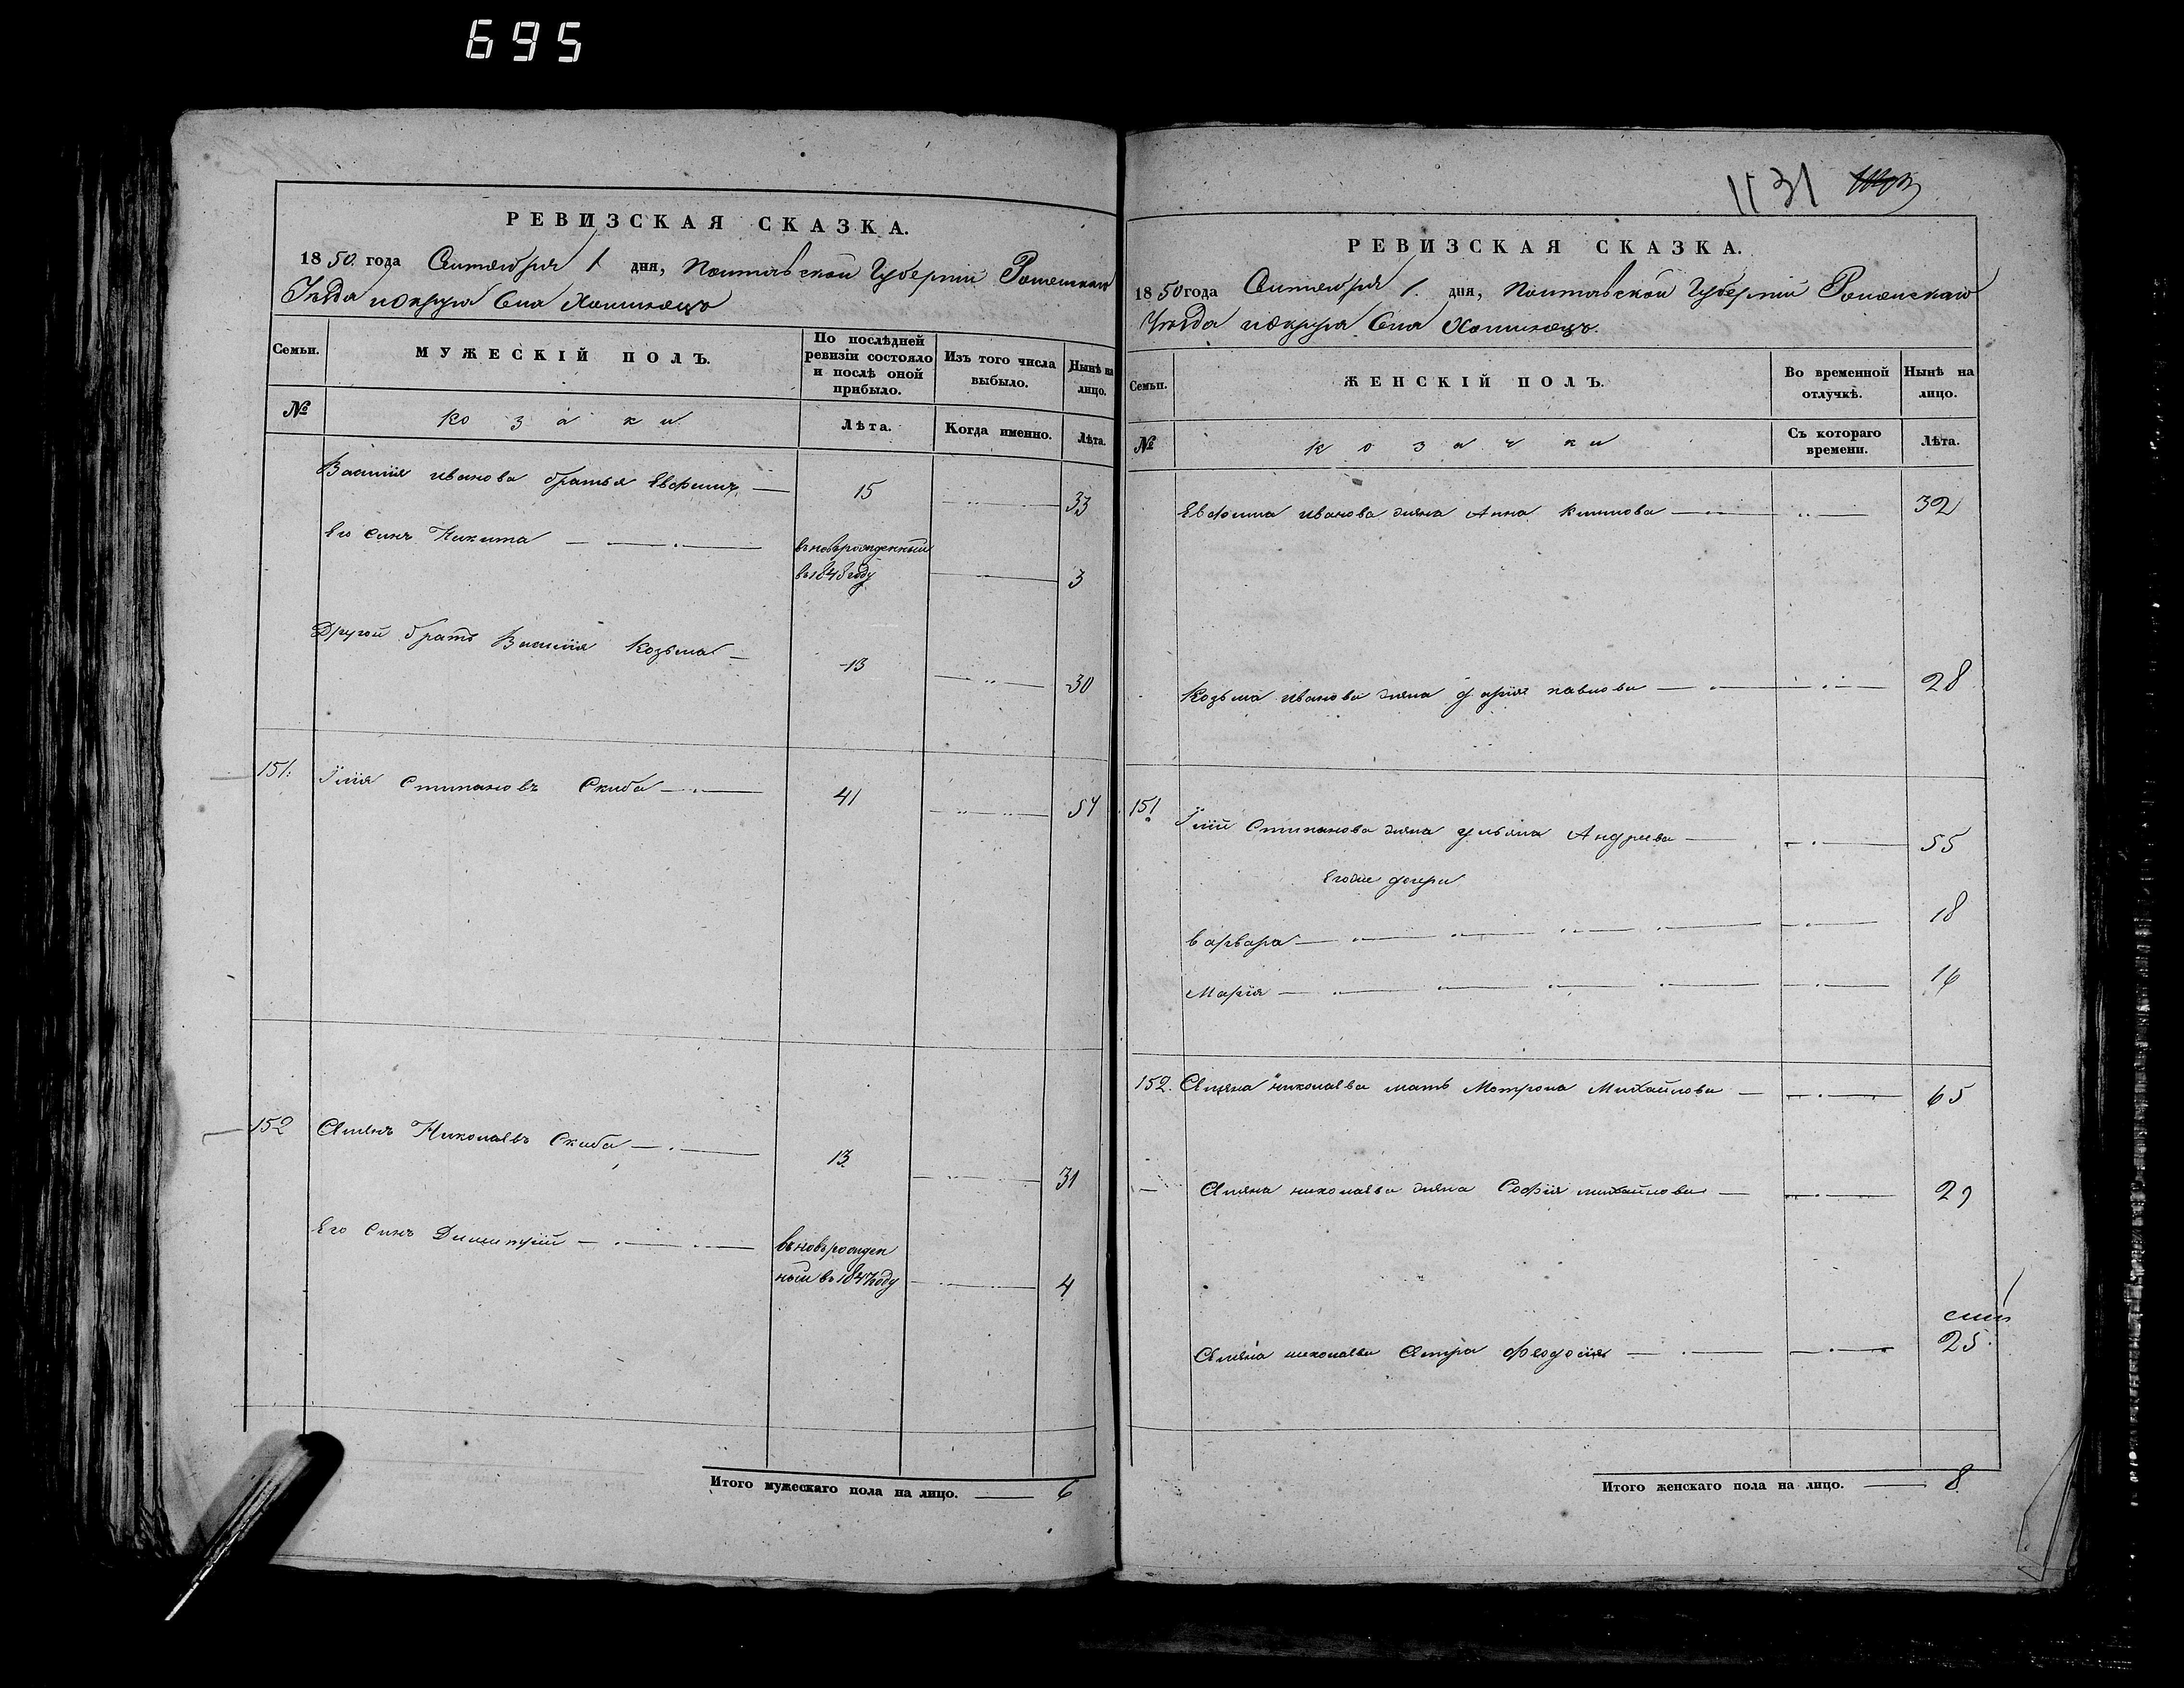 695
РЕВИЗСКАЯ СКАЗКА.
1850. года Сентября 1 дня, Полтавской Губерніи Роменскаго
Уезда и Округа Села Хоминецъ
Семьи.
МУЖЕСКІЙ ПОЛЪ.
По послѣдней
ревизіи состояло
и послѣ оной
прибыло.
Изъ того числа
выбыло.
Нынѣ на
лицо.
№
козаки
Лѣта.
Когда именно.
Лѣта.
Василія иванова братья Евфимъ 15 33
Его синъ Никита въновърожденный
въ 1848 году 3
Другой братъ Василія Козьма 13 30
151. Ілія Стипановъ Скиба 41 57
152 Семенъ Николаевъ Скиба 13 31
Его синъ Димитрій въновърожден
ный въ 1847 году 4
Итого мужескаго пола на лицо. 6
1131
РЕВИЗСКАЯ СКАЗКА.
1850 года Сентября 1. дня, Полтавской Губерніи Роменскаго
Уезда и Округа Села Хоминецъ.
Семьи.
ЖЕНСКІЙ ПОЛЪ.
Во временной
отлучкѣ.
Нынѣ на
лицо.
№
козачки
Съ котораго
времени.
Лѣта.
Евфима иванова жена Анна Климова 32
Козьма иванова жена дарія павлова 28
151 Іліи Стипанова жена ульяна Андреева 55
Егоже дочери
варвара 18
Марія 16
152. Семена николаева мать Мотрона Михайлова 65
Семена николаева жена Софія михайлова 29
Семена николаева Сестра Феодосія 25
Итого женскаго пола на лицо. 8